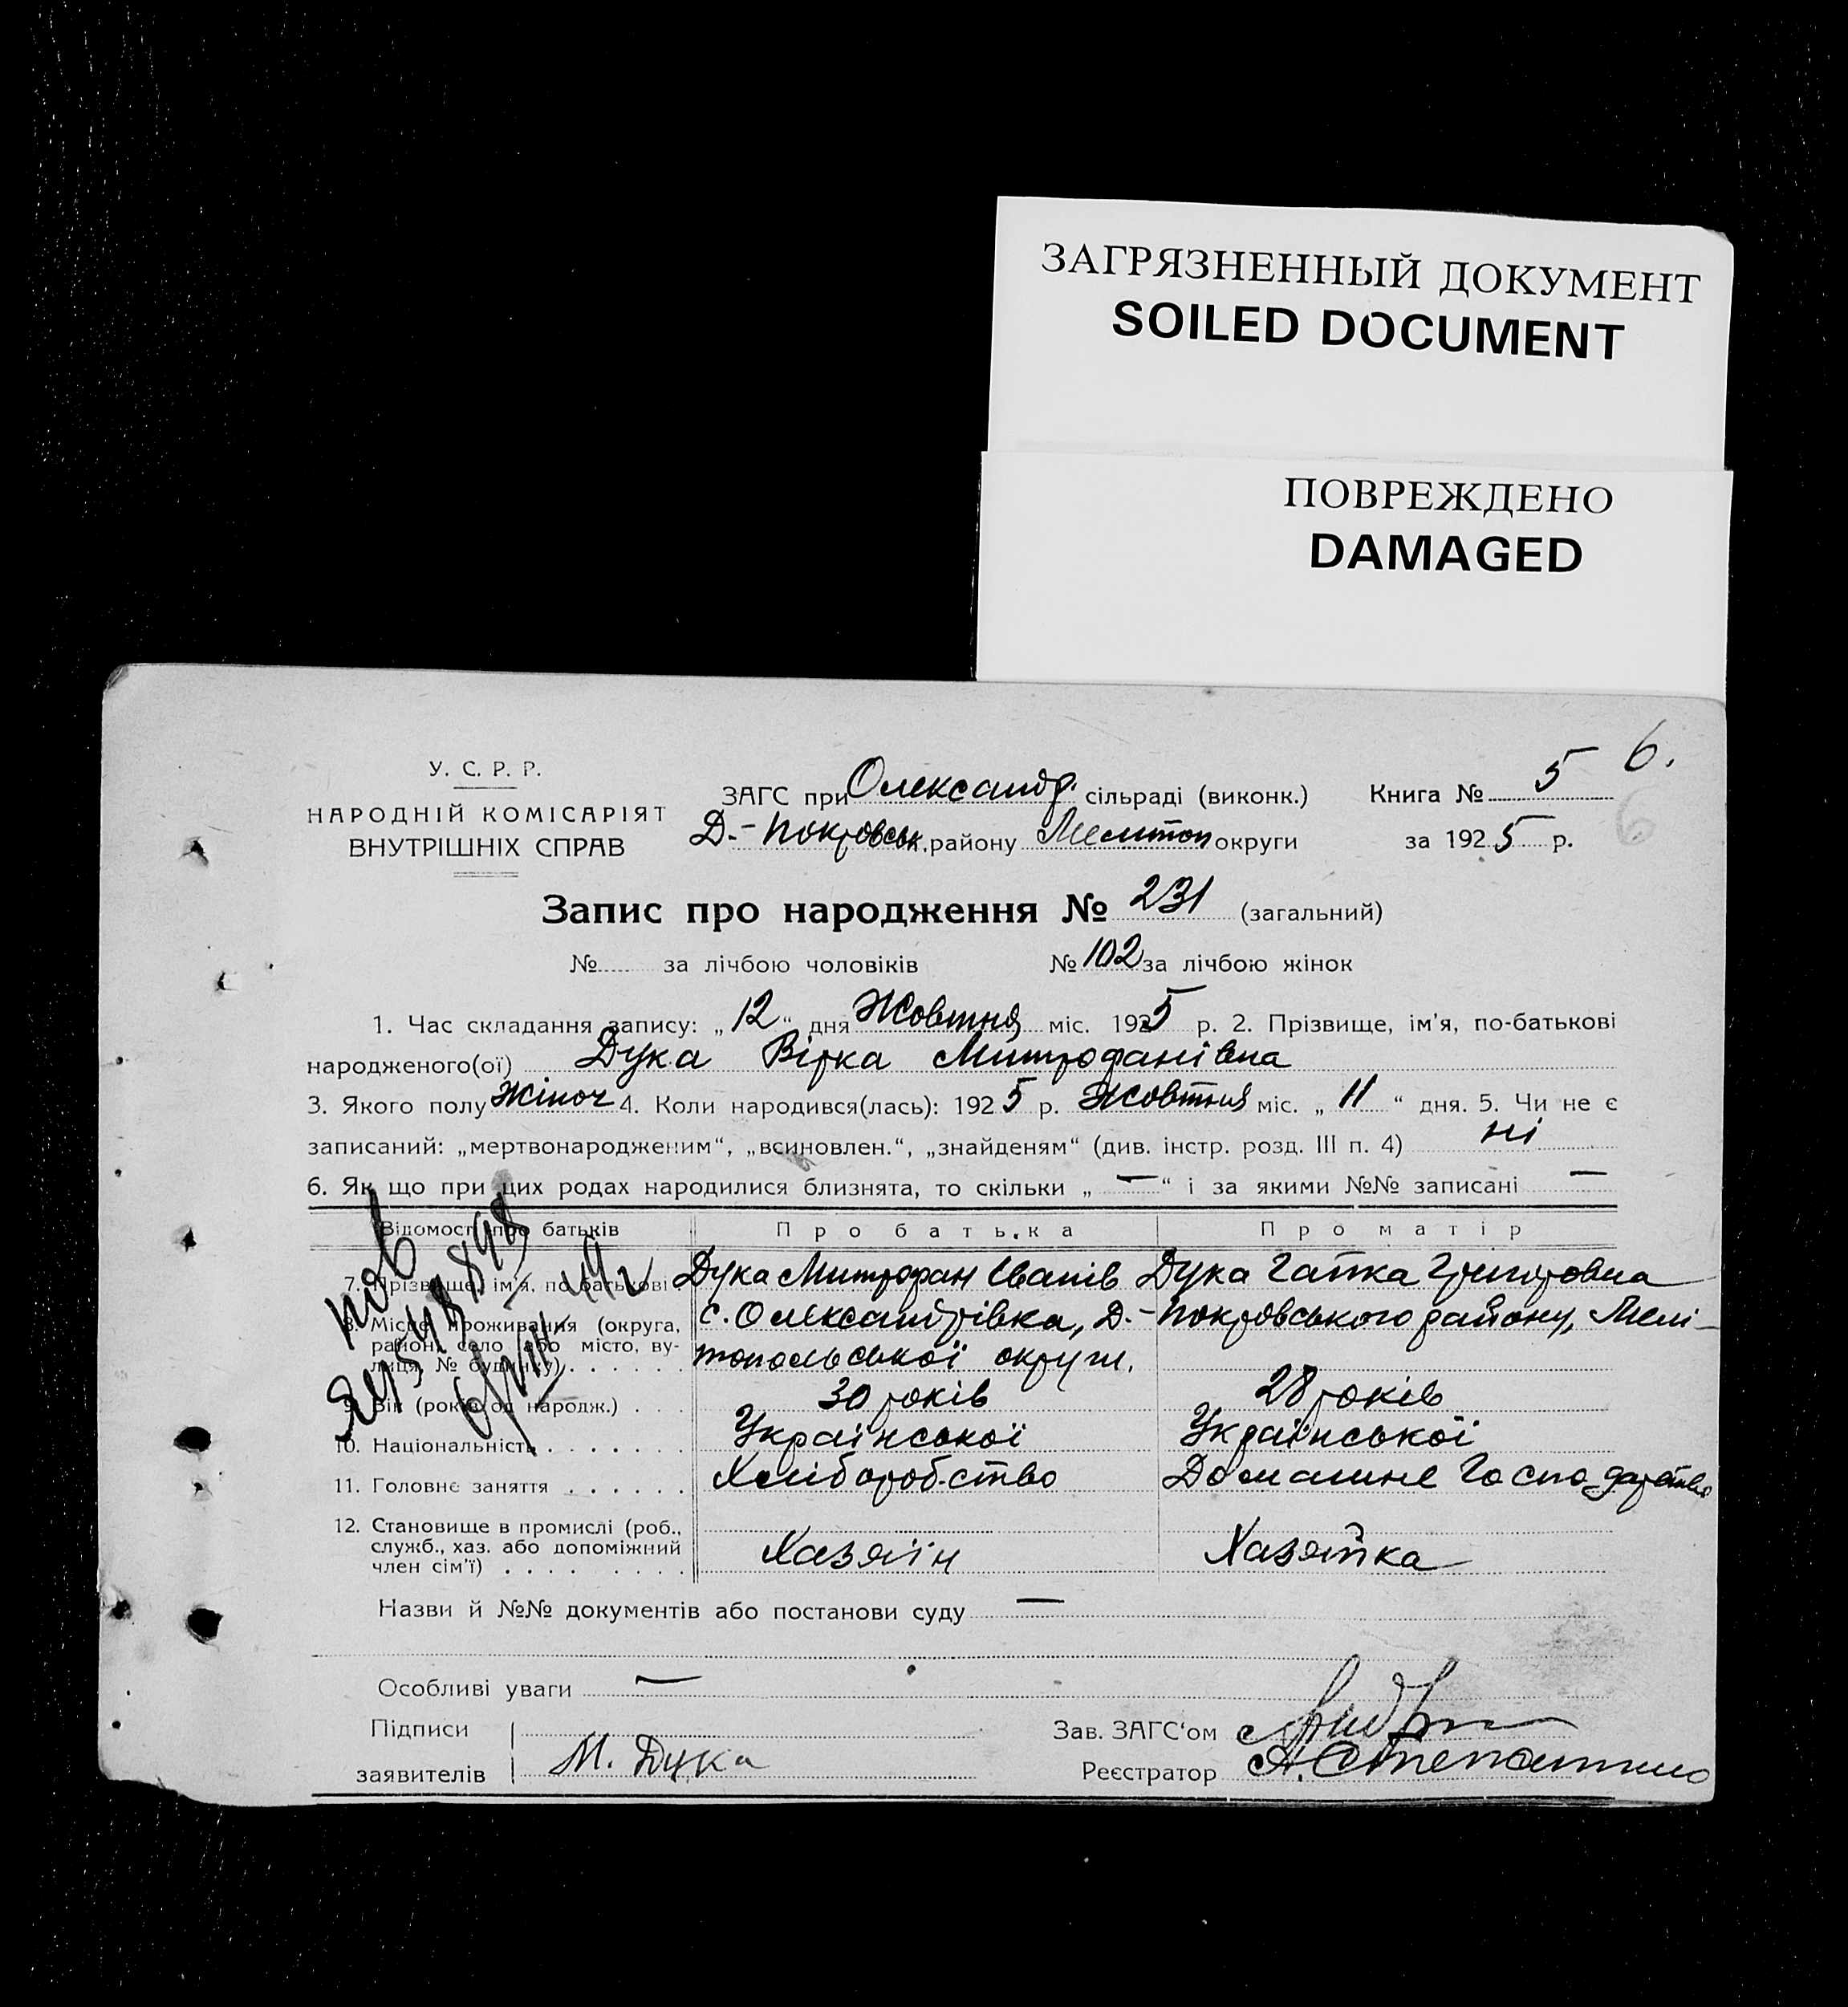 ЗАГРЯЗНЕННЫЙ ДОКУМЕНТ
SOILED DOCUMENT
ПОВРЕЖДЕНО
DAMAGED
6.
6
У. С. Р. Р.
НАРОДНІЙ КОМІСАРІЯТ
ВНУТРІШНІХ СПРАВ
ЗАГС при Олександр. сільраді (виконк.) Книга № 5
Д.-Покровськ. району Мелітоп округи за 1925 р.
Запис про народження № 231 (загальний)
№ за лічбою чоловіків № 102 за лічбою жінок
1. Час складання запису: „12“ дня Жовтня міс. 1925 р. 2. Прізвище, ім'я, по-батькові
народженого(ої) Дука Вірка Митрофанівна
3. Якого полу Жіноч 4. Коли народився(лась): 1925 р. Жовтня міс. „11“ дня. 5. Чи не є
записаний: „мертвонародженим“, „всиновлен.“, „знайденям“ (див. інстр. розд. III п. 4) ні
6. Як що при цих родах народилися близнята, то скільки „—“ і за якими №№ записані —
Відомості про батьків Про батька Про матір
7. Прізвище, ім'я, по-батькові Дука Митрофан Іванів Дука Гапка Григоровна
8. Місце проживання (округа, район, село або місто, вулиця, № будинку) с. Олександрівка, Д.-Покровського району, Мелі-
топольської округи.
9. Вік (років од народж.) 30 років 28 років
10. Національність Української Української
11. Головнє заняття Хліборобство Домашнє Господарство
12. Становище в промислі (роб.,
служб., хаз. або допоміжний
член сім'ї) Хазяїн Хазяйка
Назви й №№ документів або постанови суду —
Особливі уваги —
Підписи Зав. ЗАГС'ом
заявителів М. Дука Реєстратор А. Степаненко